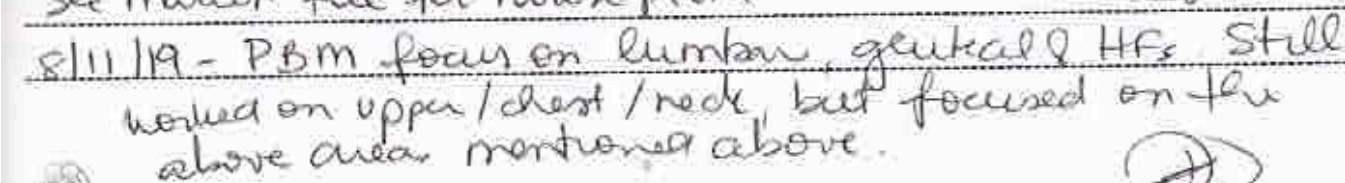 see master file for
8/11/19 - PBM focus on lumbar, gluteals & HFs. Still
worked on upper/chest/neck, but focused on the
above areas mentioned above.